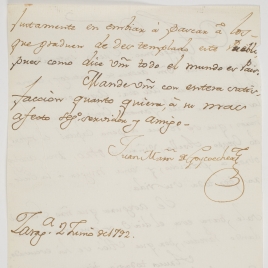 Juntamente en embiar á buscar á los
que gradúen de destemplado este Pueblo,
pues como dice Vm̃ todo el mundo es Pais.
Mande Vm̃ con entera satis-
facción quanto quiera á su mas
afecto seg.º servidor y amigo.
Juan Man.
Zarag.ª 2 Junio de 1792.